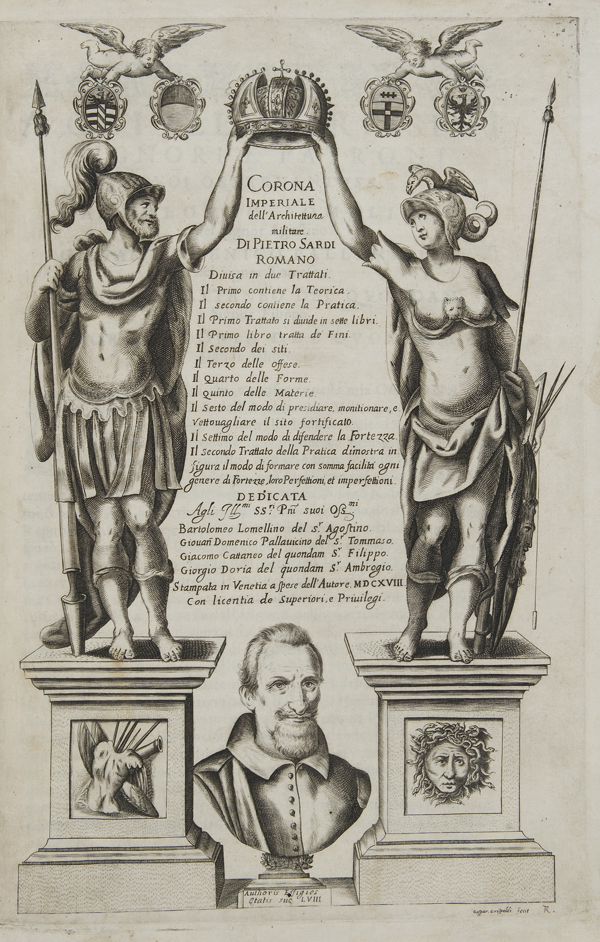 CORONA
IMPERIALE
dell'Architettura
militare.
DI PIETRO SARDI
ROMANO
Diuisa in due Trattati.
Il Primo contiene la Teorica.
Il secondo contiene la Pratica.
Il Primo Trattato si diuide in sette libri.
Il Primo libro tratta de Fini.
Il Secondo dei siti.
Il Terzo delle offese.
Il Quarto delle Forme.
Il Quinto delle Materie
Il Sesto del modo di presidiare, monitionare, e
Vettouagliare il sito fortificato.
Il Settimo del modo di difendere la Fortezza.
Il Secondo Trattato della Pratica dimostra in
figura il modo di formare con somma facilità ogni
genere di Fortezze, loro Perfettioni, et imperfettioni.
DEDICATA
Agli Ill.mi SS.ri Pñi suoi Oss.mi
Bartolomeo Lomellino del s.r Agostino.
Giouañ Domenico Pallauicino del s.r Tommaso.
Giacomo Cattaneo del quondam S.r Filippo.
Giorgio Doria del quondam S.r Ambrogio.
Stampata in Venetia a spese dell'Autore. MDCXVIII
Con licentia de Superiori, e Priuilegi.
Authoris Effigies
Etatis suę LVIII